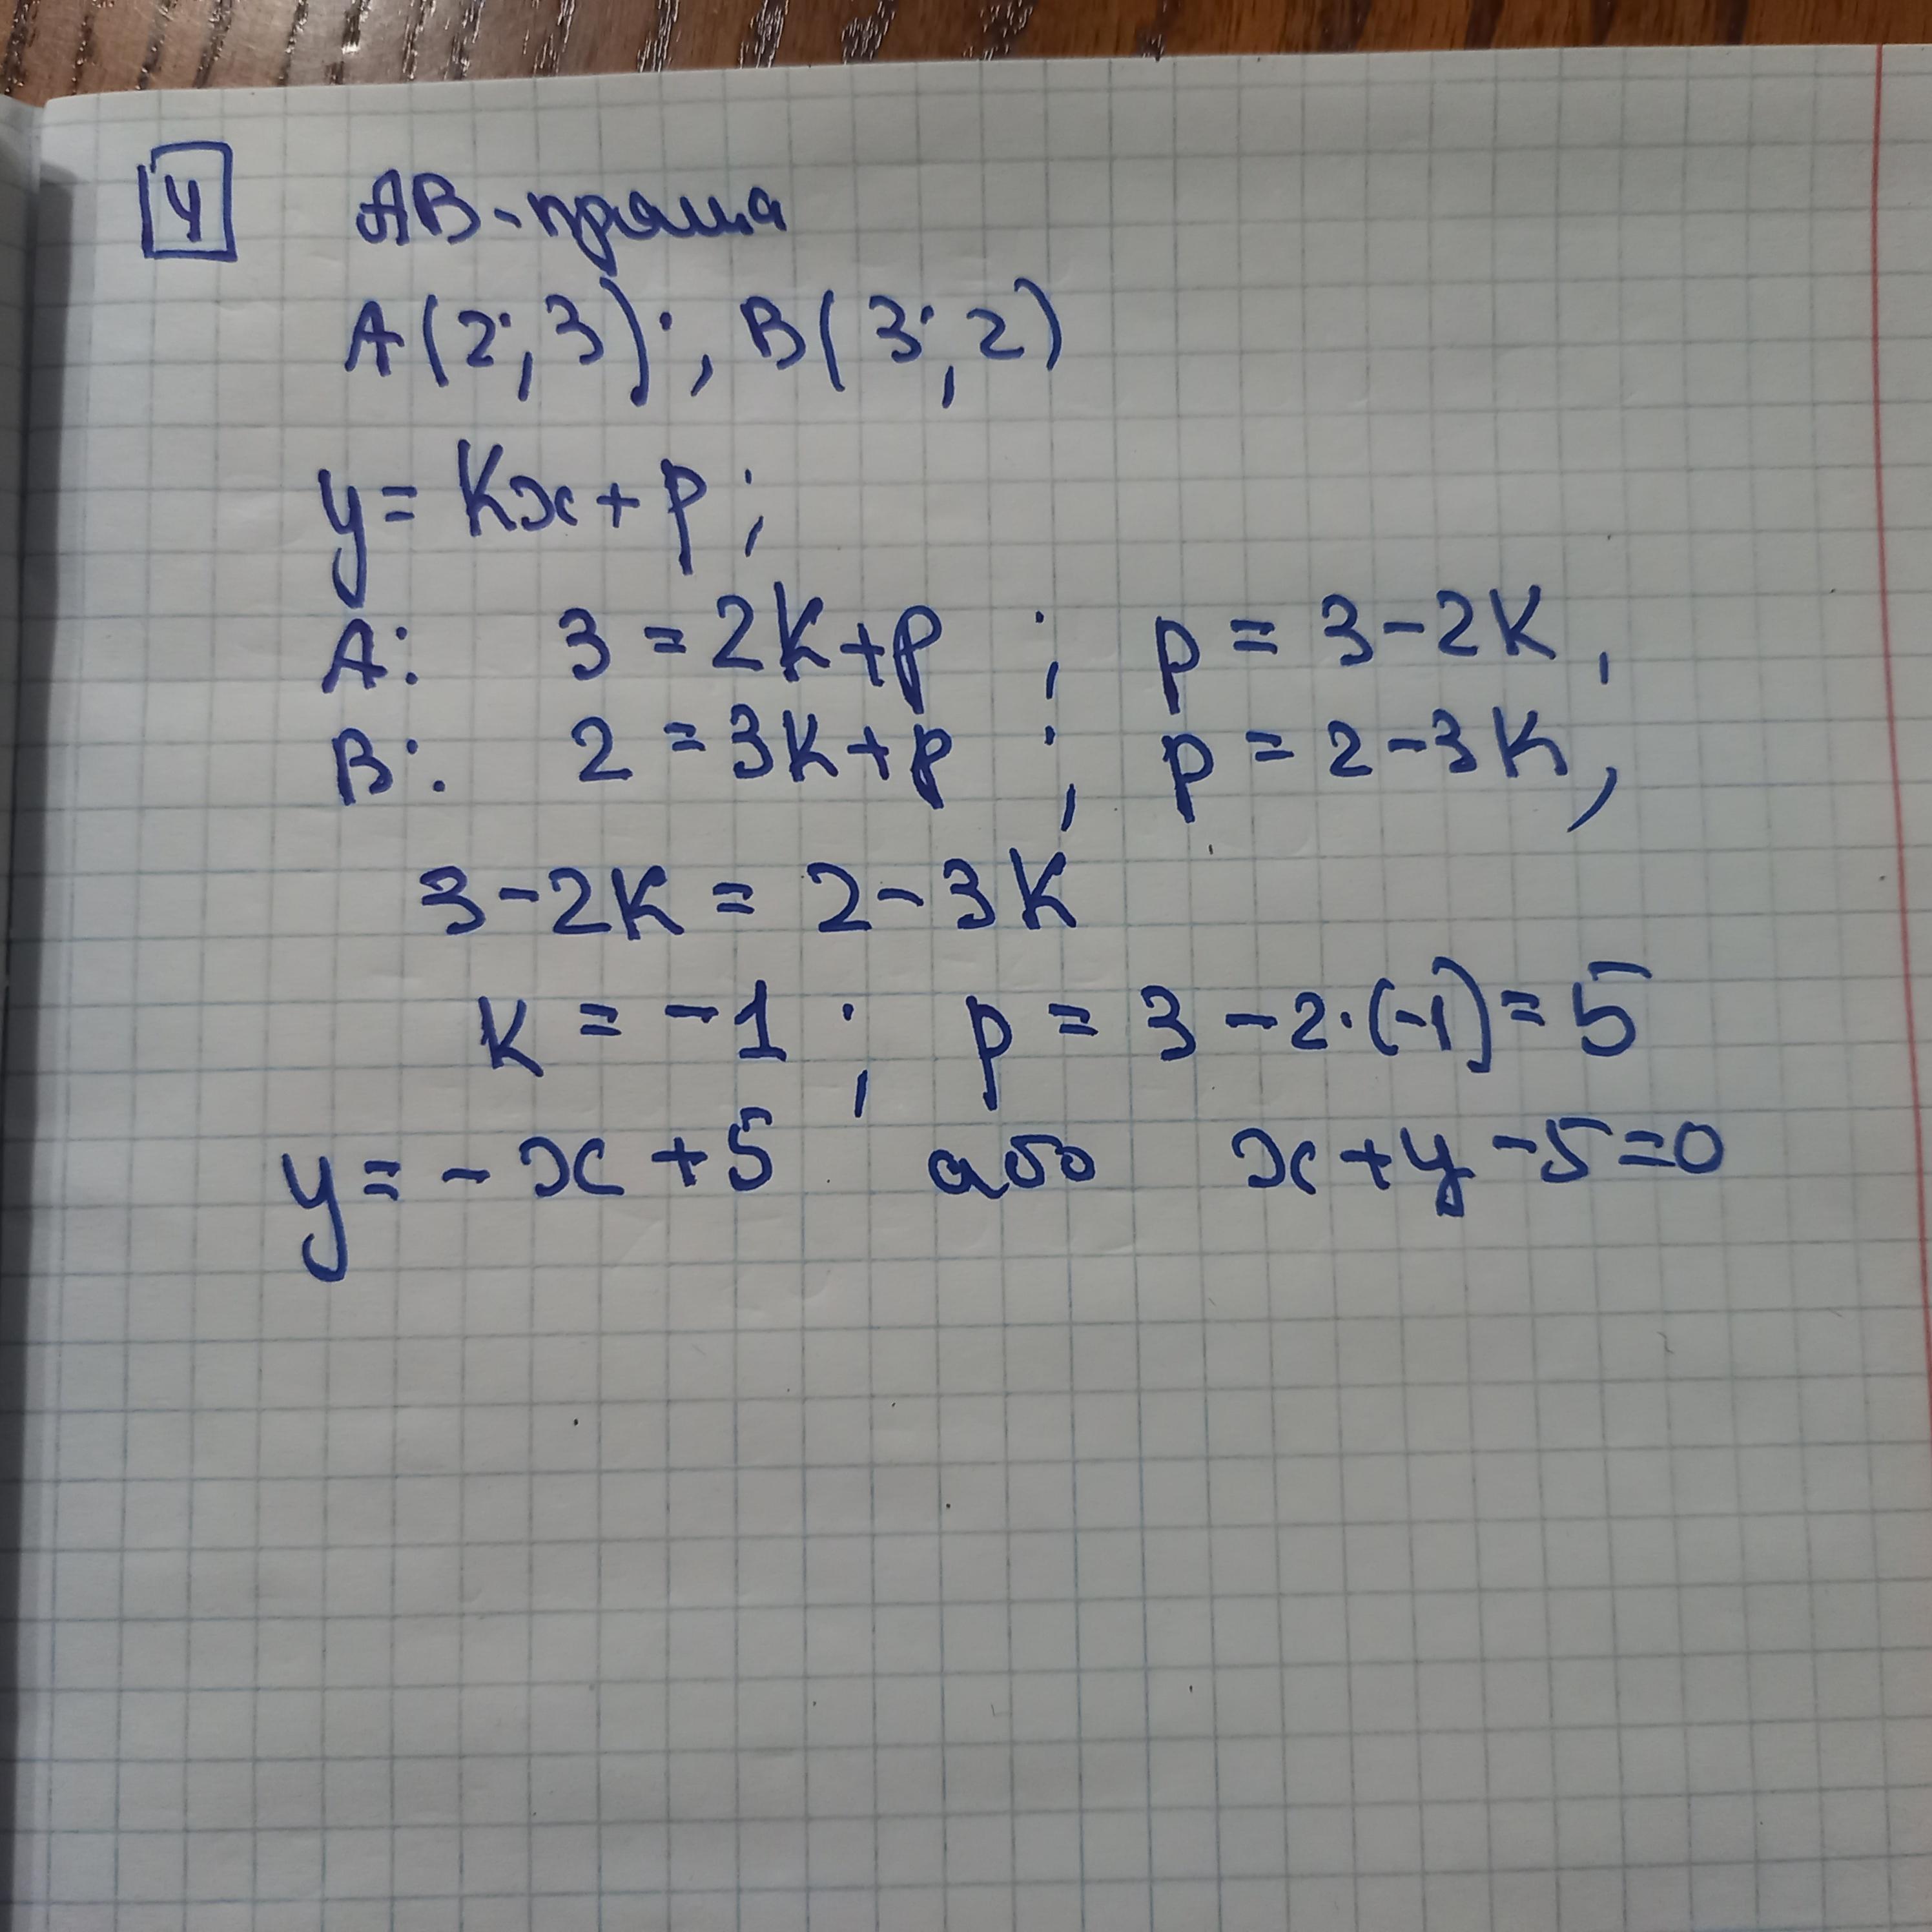 4 AB-пряма
A(2;3); B(3;2)
y = Kx + p;
A: 3 = 2K+p ; p = 3-2K,
B: 2 = 3K+p ; p = 2-3K,
3-2K = 2-3K
K = -1 ; p = 3-2·(-1)=5
y = -x +5 або x+y-5=0